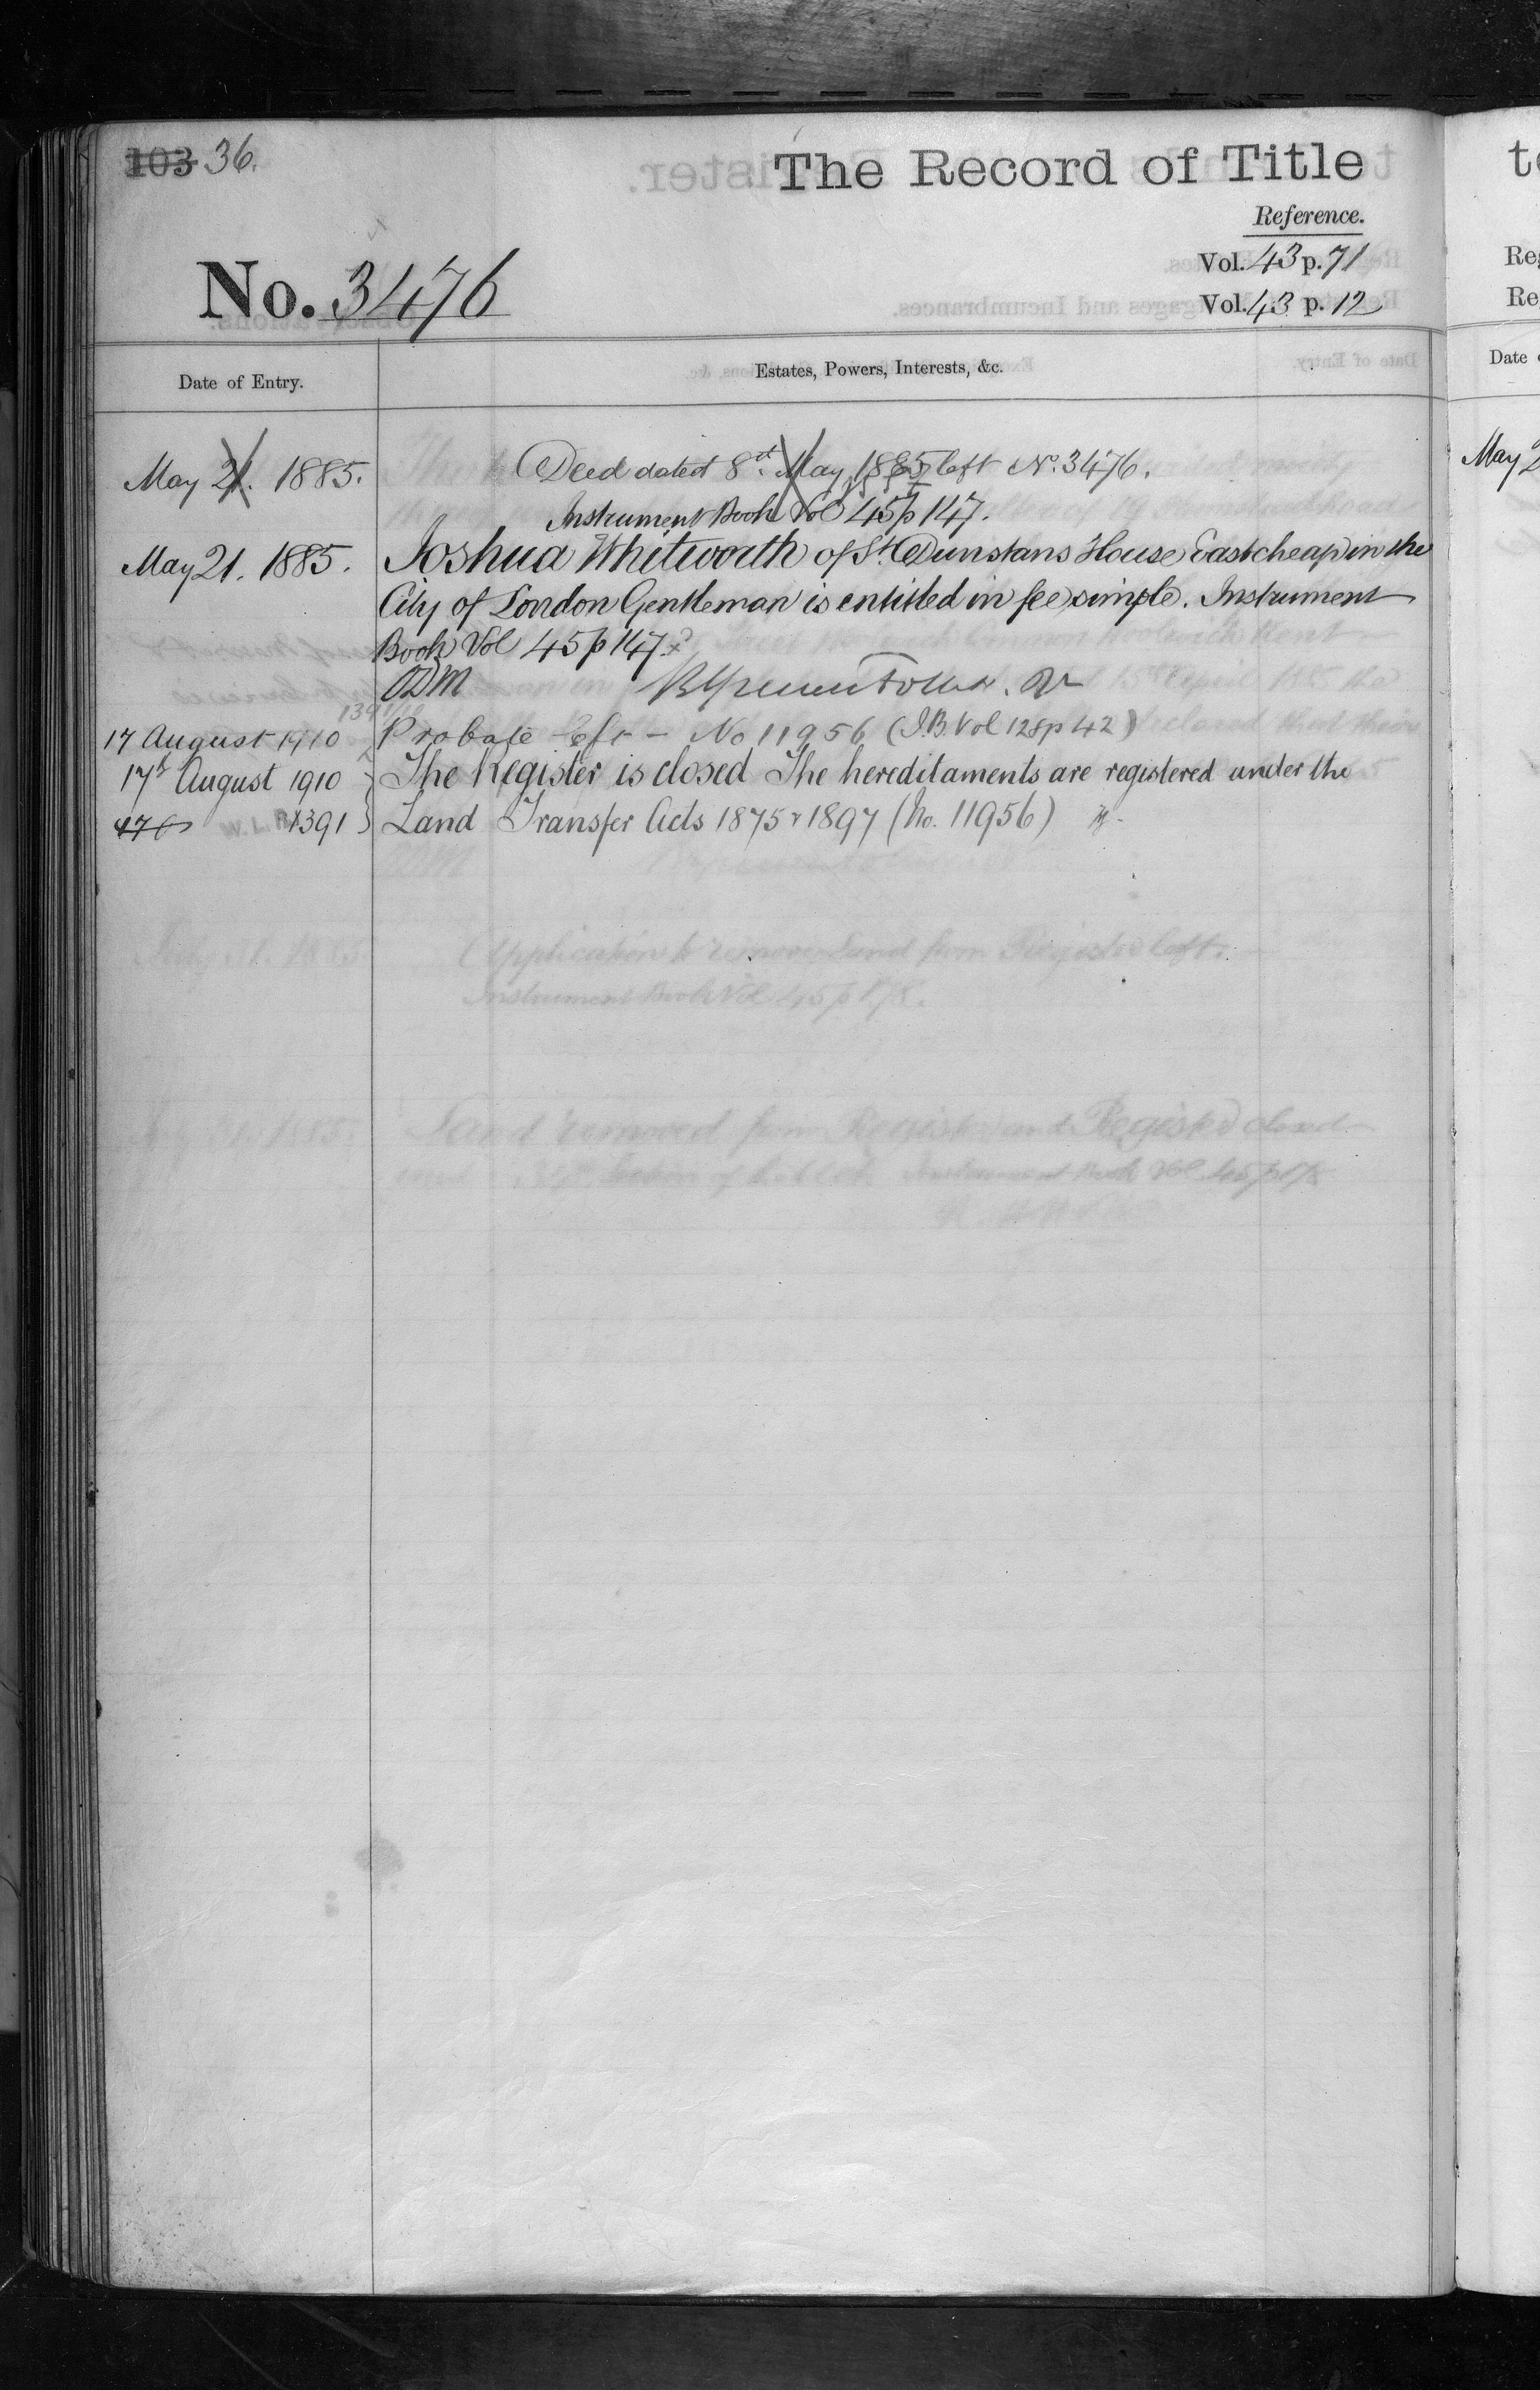 103 36.
The Record of Title
Reference.
Vol. 43 p. 71
Vol. 43 p. 12
No. 3476
Date of Entry.
Estates, Powers, Interests, &c.
May 21. 1885. Deed dated 8st. May, 1885 left No. 3476.
Instrument Book Vol 45 p 147.
May 21. 1885. Joshua Whitworth of St. Dunstans House Eastcheap in the
City of London Gentleman is entitled in fee simple. Instrument
Book Vol 45 p 147.
ODM
17 August 1910 Probate left - No 11956 (I.B. Vol 128 p 42)
17th August 1910 The Register is closed The hereditaments are registered under the
1391 Land Transfer Acts 1875 & 1897 (No. 11956)
to
Reg
Re
Date
May 2